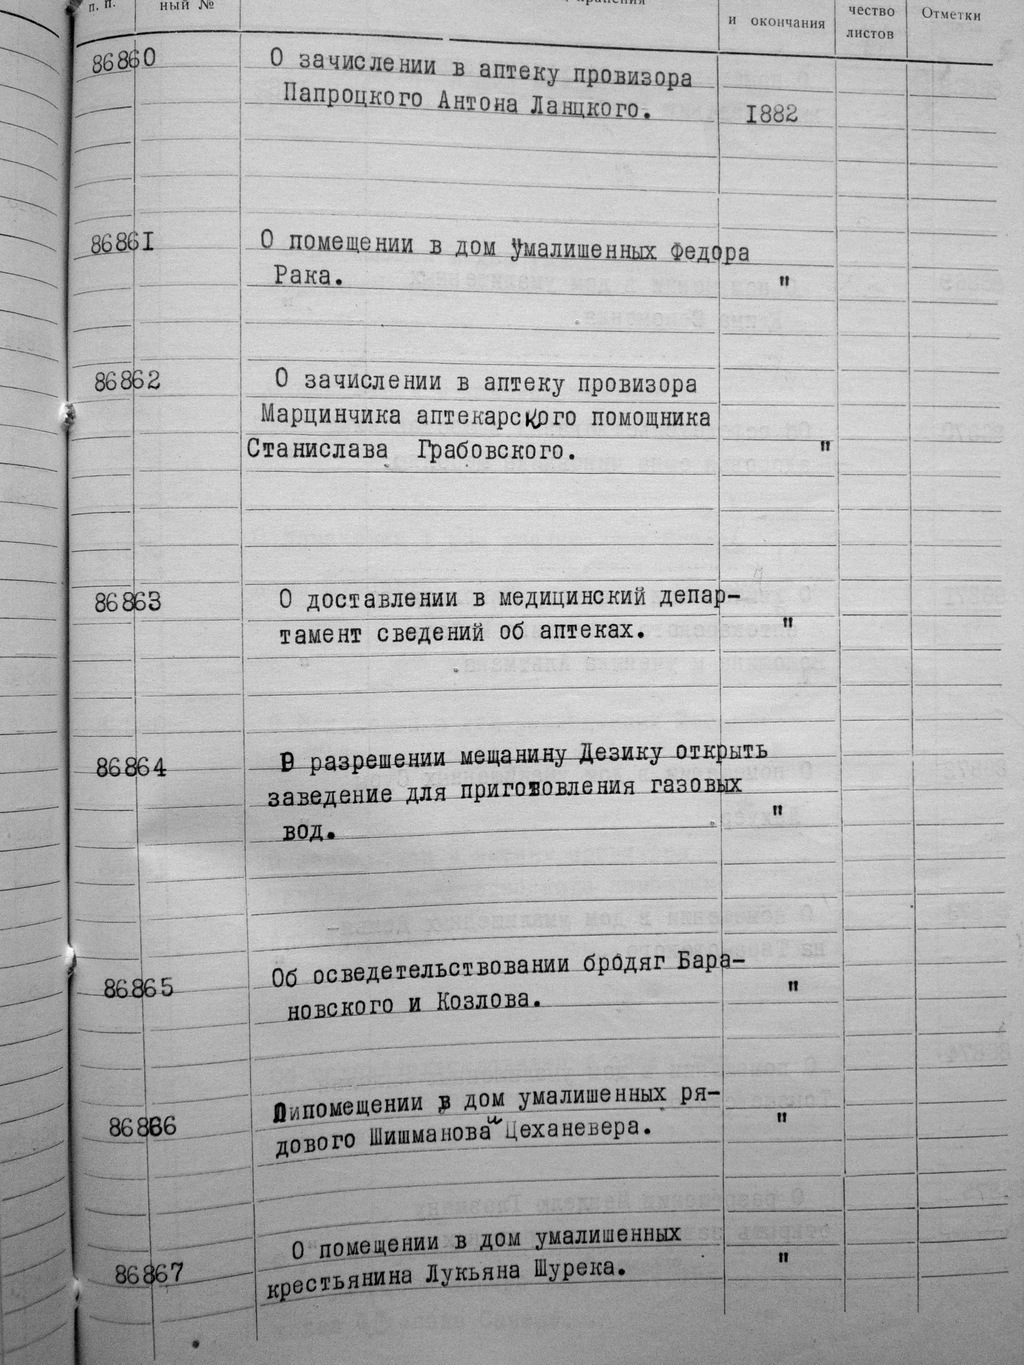 п. п.
ный №
и окончания
чество
листов
Отметки
86860
О зачислении в аптеку провизора
Папроцкого Антона Ланцкого.
I882
8686I
О помещении в дом умалишенных Федора
Рака.
"
86862
О зачислении в аптеку провизора
Марцинчика аптекарского помощника
Станислава Грабовского.
"
86863
О доставлении в медицинский депар-
тамент сведений об аптеках.
"
86864
О разрешении мещанину Дезику открыть
заведение для приготовления газовых
вод.
"
86865
Об осведетельствовании бродяг Бара-
новского и Козлова.
"
86866
О помещении в дом умалишенных ря-
дового Шишманова и Цеханевера.
"
86867
О помещении в дом умалишенных
крестьянина Лукьяна Шурека.
"